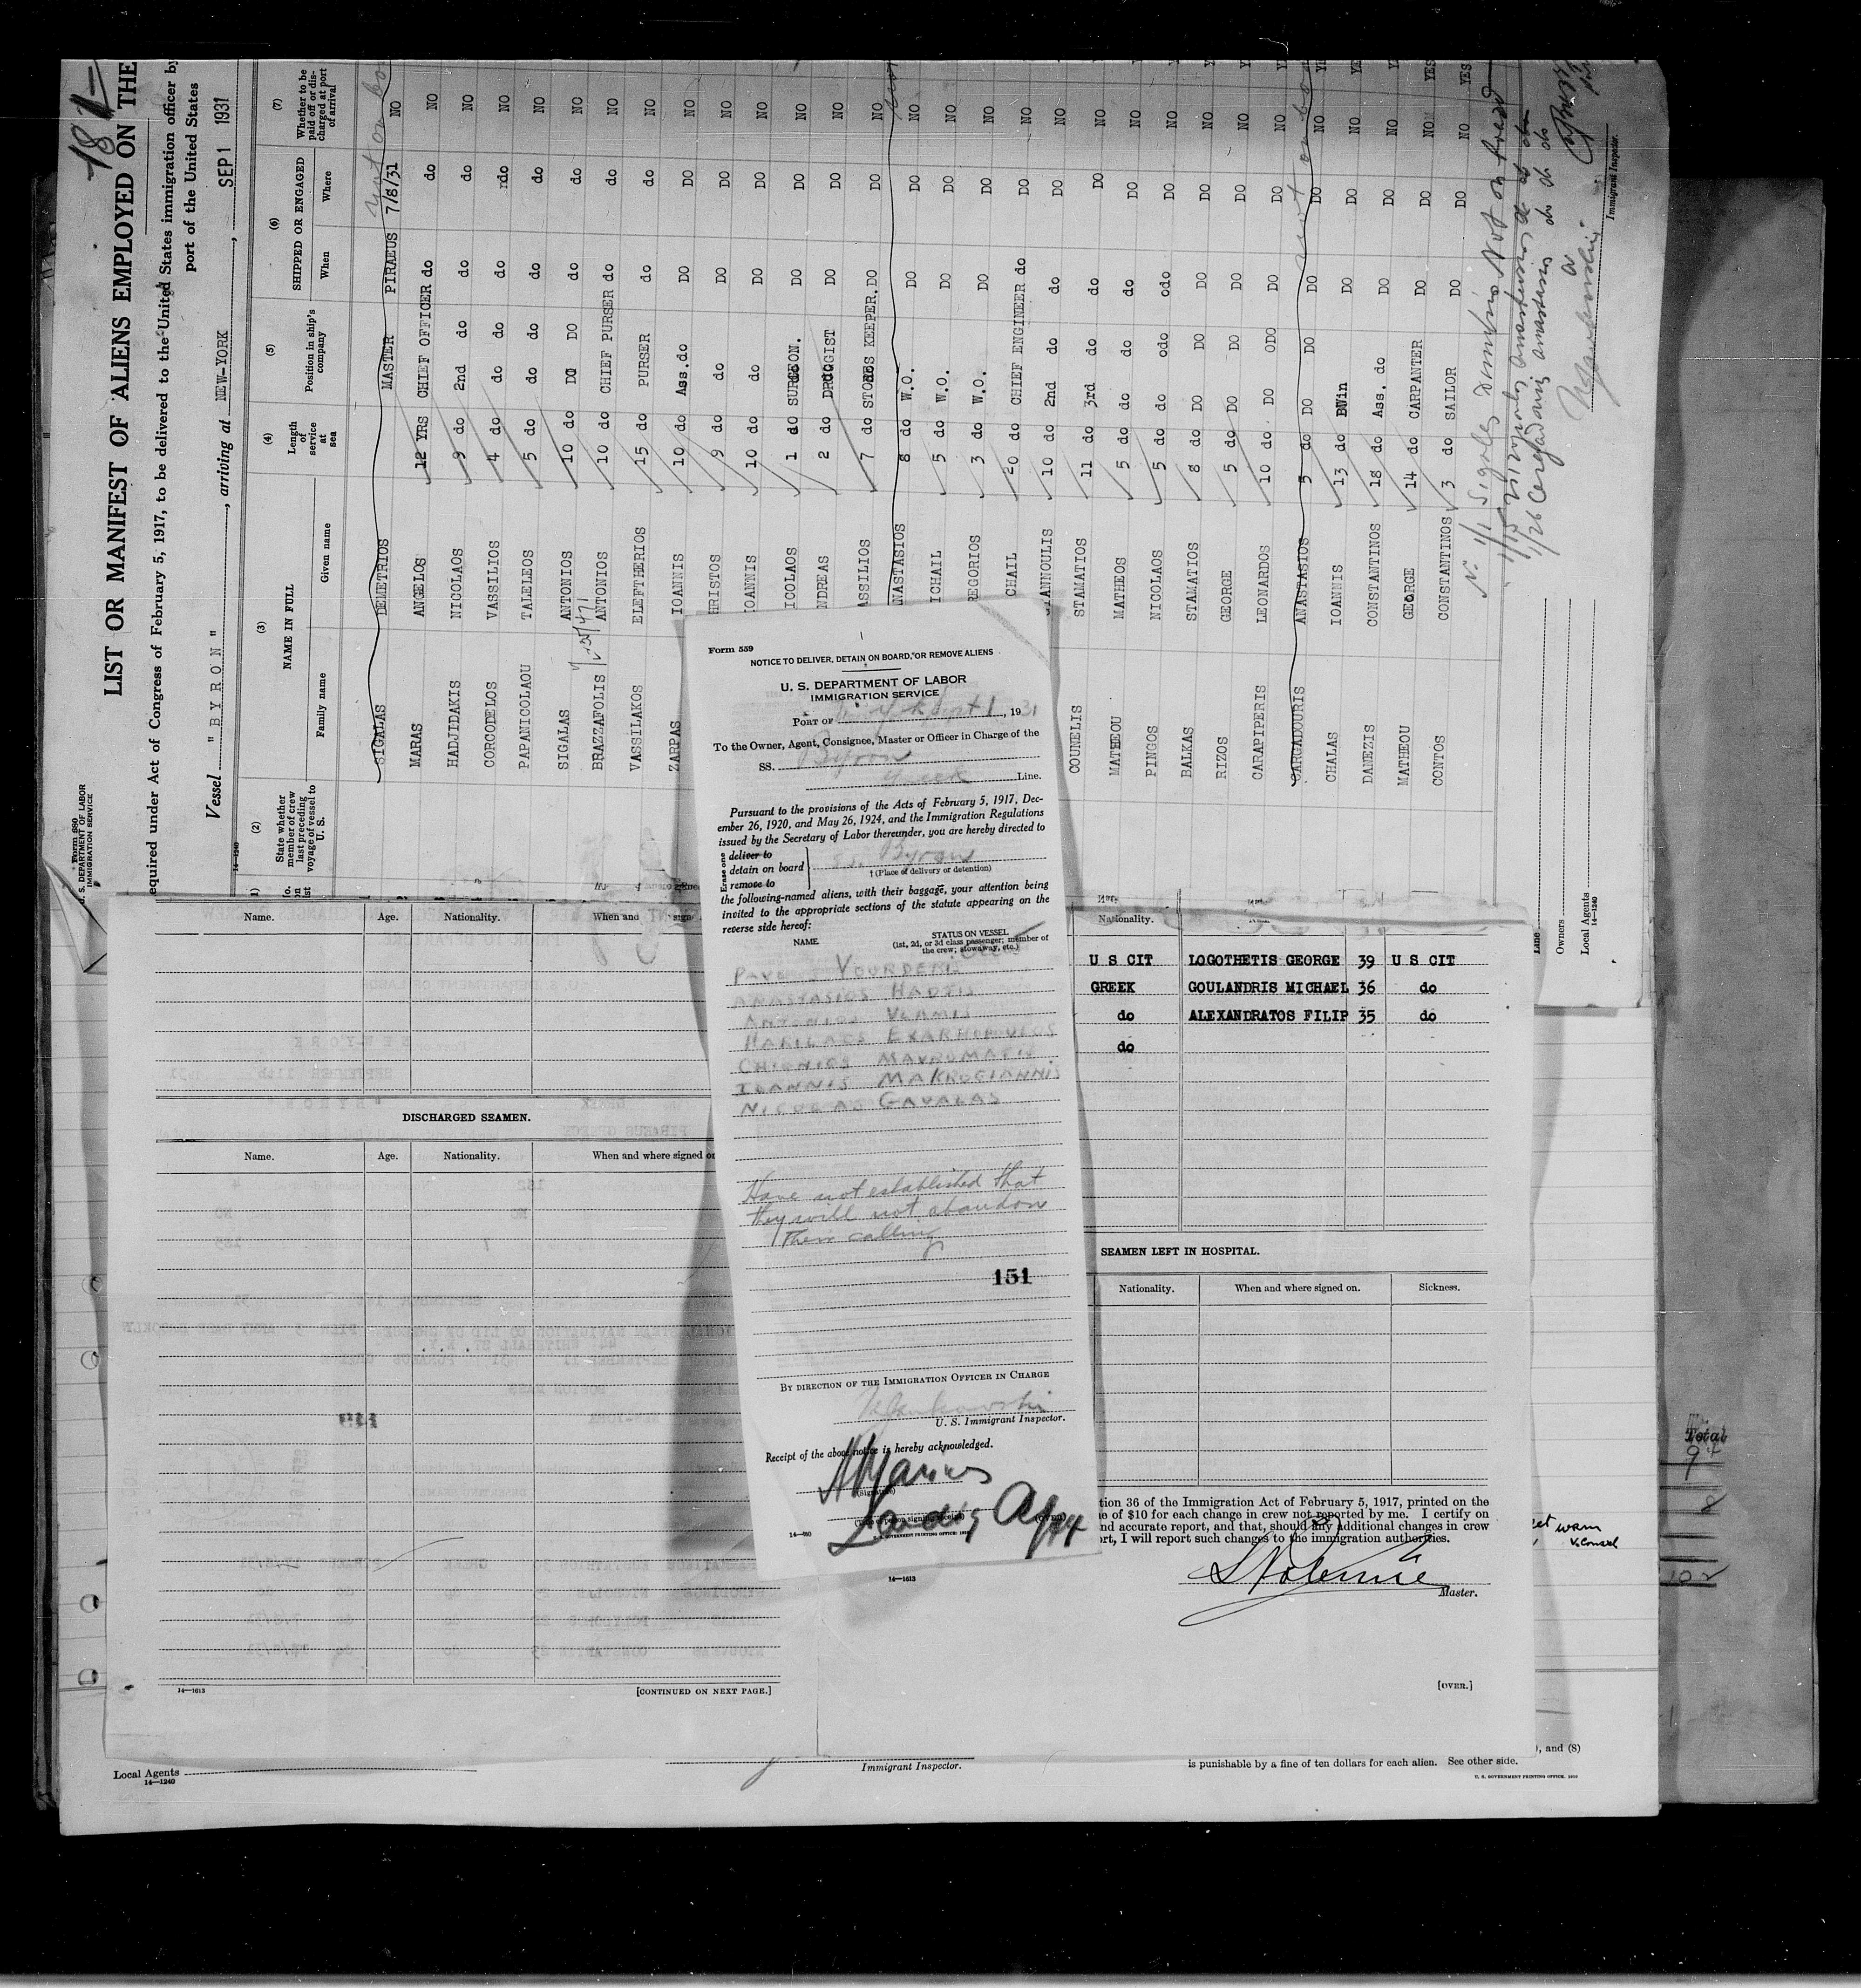 181
LIST OR MANIFEST OF ALIENS EMPLOYED ON THE
Required under Act of Congress of February 5, 1917, to be delivered to the United States immigration officer by
port of the United States
Vessel "BYRON", arriving at NEW-YORK, SEP 1 1931
Form 680
U. S. DEPARTMENT OF LABOR
IMMIGRATION SERVICE
14—1240
(2) State whether member of crew last preceding voyage of vessel to U. S.
(3) NAME IN FULL
Family name Given name
(4) Length of service at sea
(5) Position in ship's company
(6) SHIPPED OR ENGAGED
When Where
(7) Whether to be paid off or discharged at port of arrival
SIGALAS DEMETRIOS MASTER PIRAEUS 7/8/31 NO
MARAS ANGELOS 12 YRS CHIEF OFFICER do do NO
HADJIDAKIS NICOLAOS 9 do 2nd do do do NO
CORCODELOS VASSILIOS 4 do do do do do NO
PAPANICOLAOU TALELEOS 5 do do do do do NO
SIGALAS ANTONIOS 10 do DO DO do do NO
BRAZZAFOLIS ANTONIOS 10 do CHIEF PURSER do do NO
VASSILAKOS ELEFTHERIOS 15 do PURSER do do NO
ZARPAS IOANNIS 10 do Ass. do DO DO NO
HRISTOS 9 do do DO DO NO
IOANNIS 10 do do DO DO NO
ICOLAOS 1 do SURGEON. DO DO NO
NDREAS 2 do DRUGIST DO DO NO
ASSILIOS 7 do STORES KEEPER. DO DO NO
NASTASIOS 8 do W.O. DO DO NO
ICHAIL 5 do W.O. DO DO NO
REGORIOS 3 do W.O. DO DO NO
CHAIL 20 do CHIEF ENGINEER do DO NO
IANNOULIS 10 do 2nd do do DO NO
COUNELIS STAMATIOS 11 do 3rd do do DO NO
MATHEOU MATHEOS 5 do do do do DO NO
PINGOS NICOLAOS 5 do do odo odo DO NO
BALKAS STAMATIOS 8 do DO DO DO DO NO
RIZOS GEORGE 5 do DO DO DO DO NO
CARAPIPERIS LEONARDOS 10 do DO ODO DO DO NO
CARGADOURIS ANASTASIOS 5 do DO DO DO DO NO
CHALAS IOANNIS 13 do DO DO NO
DAMEZIS CONSTANTINOS 18 do Ass. do DO DO NO
MATHEOU GEORGE 14 do CARPANTER DO DO NO
CONTOS CONSTANTINOS 3 do SAILOR DO DO NO YES
not on board
Immigrant Inspector.
Owners
Local Agents
14—1240
Form 559
NOTICE TO DELIVER, DETAIN ON BOARD, OR REMOVE ALIENS
U. S. DEPARTMENT OF LABOR
IMMIGRATION SERVICE
PORT OF N. Y. Sept 1, 1931
To the Owner, Agent, Consignee, Master or Officer in Charge of the
SS. Byron
Greek Line.
Pursuant to the provisions of the Acts of February 5, 1917, Dec-
ember 26, 1920, and May 26, 1924, and the Immigration Regulations
issued by the Secretary of Labor thereunder, you are hereby directed to
Erase one
deliver to
detain on board SS. Byron
remove to
† (Place of delivery or detention)
the following-named aliens, with their baggage, your attention being
invited to the appropriate sections of the statute appearing on the
reverse side hereof:
NAME STATUS ON VESSEL
(1st, 2d, or 3d class passenger; member of
the crew; stowaway, etc.)
VOURDERI
ANASTASIOS HADJIS
ANTONIOS VLAMIS
HARILAOS EXARHOPOULOS
CHIONIOS MAVROMATIS
IOANNIS MAKROGIANNIS
NICOLAS GAVALAS
Have not established that
they will not abandon
their calling
151
BY DIRECTION OF THE IMMIGRATION OFFICER IN CHARGE
U. S. Immigrant Inspector.
Receipt of the above notice is hereby acknowledged.
(Signature)
Landing Agent
(Title of person signing receipt)
(OVER)
Name. Age. Nationality. When and
DISCHARGED SEAMEN.
Name. Age. Nationality. When and where signed on
14—1613
[CONTINUED ON NEXT PAGE.]
Nationality.
U S CIT LOGOTHETIS GEORGE 39 U S CIT
GREEK GOULANDRIS MICHAEL 36 do
do ALEXANDRATOS FILIP 35 do
do
SEAMEN LEFT IN HOSPITAL.
Nationality. When and where signed on. Sickness.
tion 36 of the Immigration Act of February 5, 1917, printed on the
e of $10 for each change in crew not reported by me. I certify on
nd accurate report, and that, should any additional changes in crew
ort, I will report such changes to the immigration authorities.
Master.
14—1613
[OVER.]
Local Agents
14—1240
Immigrant Inspector.
, and (8)
is punishable by a fine of ten dollars for each alien. See other side.
U. S. GOVERNMENT PRINTING OFFICE. 1930
Total